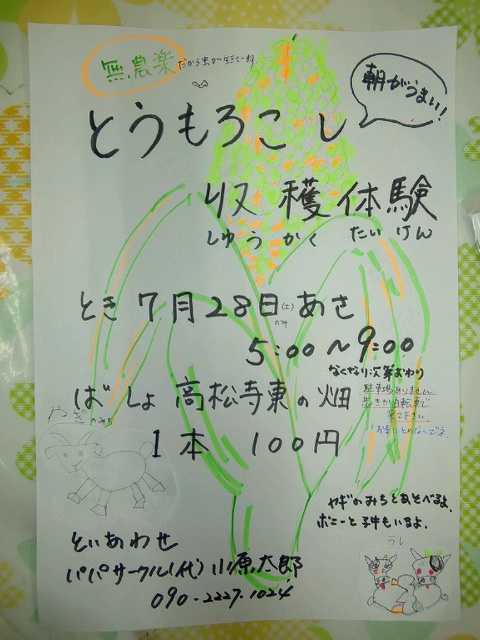 無農薬
だから虫が生きてる
朝がうまい!
とうもろこし
収穫体験
しゅうかく たいけん
とき 7月28日(土)あさ
のみ
5:00〜9:00
なくなり次第おわり
ばしょ 高松寺東の畑
駐車場ありません
歩きか自転車で
来て下さい
お寺にとめないでネ
やぎのみち
1本 100円
ヤギのみちとあそべるよ。
ポニーと子牛もいるよ。
といあわせ
パパサークル(代)小原太郎
090-2227-1024